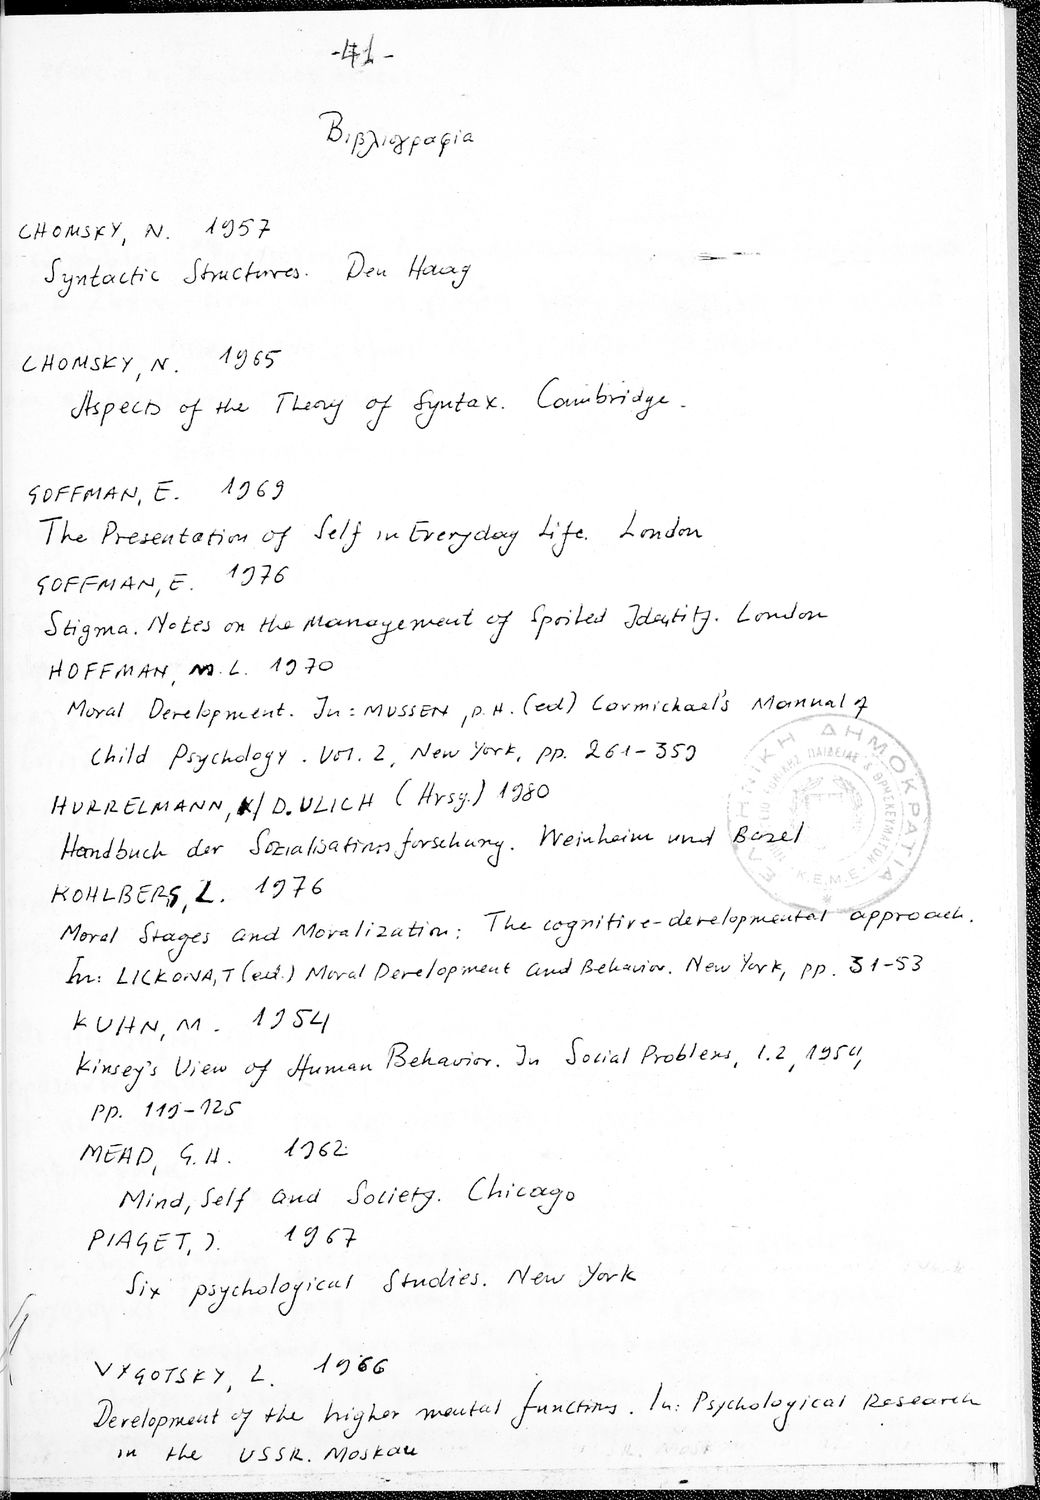 -41-
Βιβλιογραφία
CHOMSKY, N. 1957
Syntactic Structures. Den Haag
CHOMSKY, N. 1965
Aspects of the Theory of Syntax. Cambridge.
GOFFMAN, E. 1969
The Presentation of Self in Everyday Life. London
GOFFMAN, E. 1976
Stigma. Notes on the Management of Spoiled Identity. London
HOFFMAN, M.L. 1970
Moral Development. In: MUSSEN, P.H. (ed) Carmichael's Manual of
Child Psychology. Vol. 2, New York, pp. 261-359
HURRELMANN, K/ D. ULICH (Hrsg.) 1980
Handbuch der Sozialisationsforschung. Weinheim und Basel
KOHLBERG, L. 1976
Moral Stages and Moralization: The cognitive-developmental approach.
In: LICKONA, T (ed.) Moral Development and Behavior. New York, pp. 31-53
KUHN, M. 1954
Kinsey's View of Human Behavior. In Social Problems, 1.2, 1954,
pp. 119-125
MEAD, G.H. 1962
Mind, Self and Society. Chicago
PIAGET, J. 1967
Six psychological Studies. New York
VYGOTSKY, L. 1966
Development of the higher mental functions. In: Psychological Research
in the USSR. Moskau
ΕΛΛΗΝΙΚΗ ΔΗΜΟΚΡΑΤΙΑ
ΠΑΙΔΕΙΑΣ & ΘΡΗΣΚΕΥΜΑΤΩΝ
Κ.Ε.Μ.Ε.